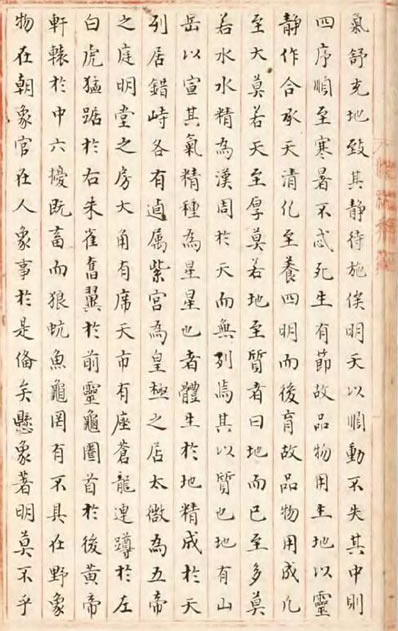 氣舒光地致其靜待施俟明天以順動不失其中則
四序順至寒暑不忒死生有節故品物用生地以靈
靜作合承天清化至養四明而後育故品物用成凡
至大莫若天至厚莫若地至質者曰地而已至多莫
若水水精為漢周於天而無列焉其以質也地有山
岳以宣其氣精種為星星也者體生於地精成於天
列居錯峙各有逌屬紫宮為皇極之居太微為五帝
之庭明堂之房大角有席天市有座蒼龍連蹲於左
白虎猛踞於右朱雀奮翼於前靈龜圈首於後黃帝
軒轅於中六擾既畜而狼蚖魚鼈罔有不具在野象
物在朝象官在人象事於是備矣懸象著明莫不乎